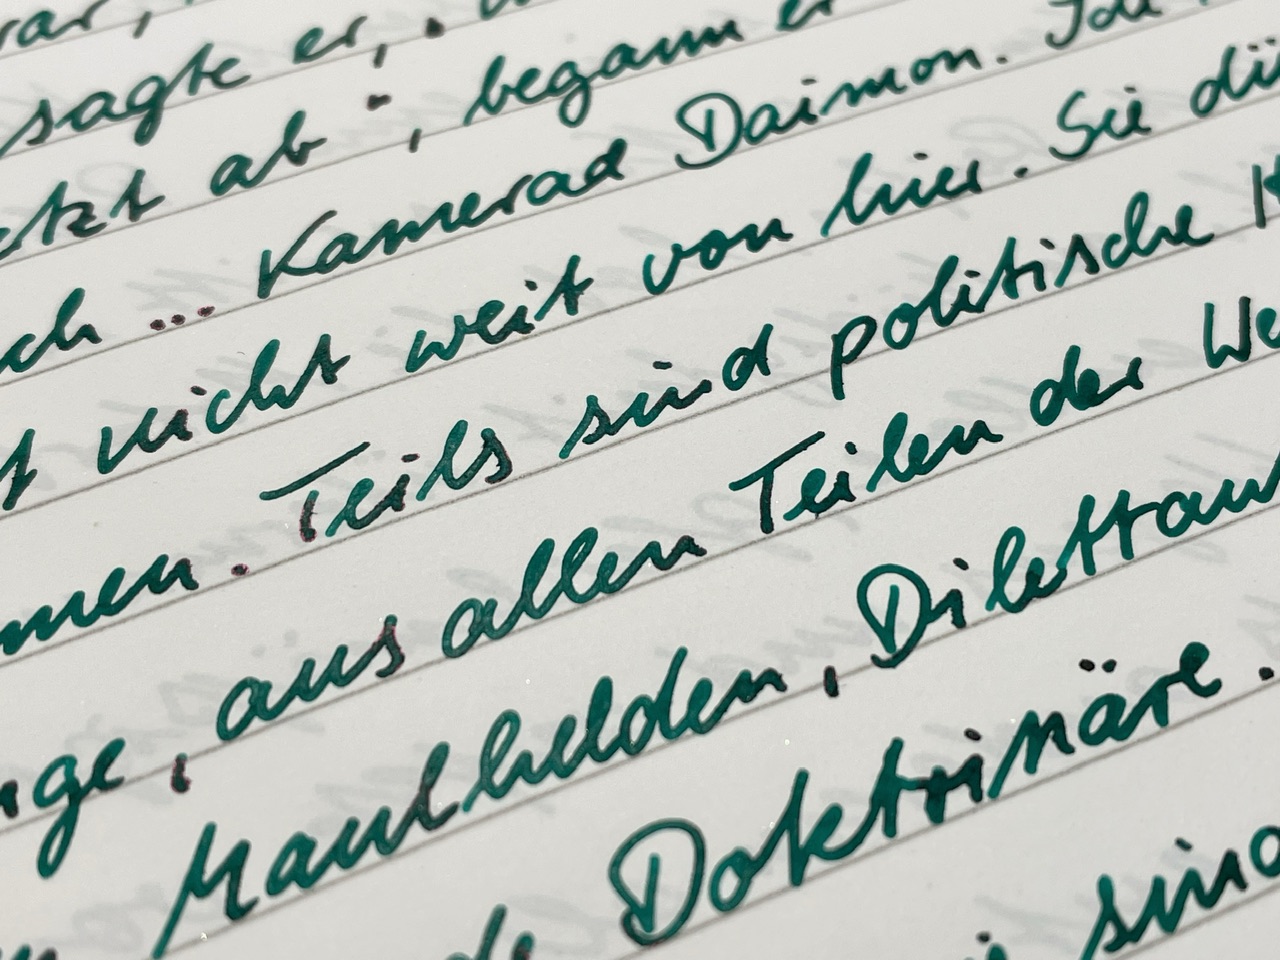 sagte er, „
ab“, begann er
... Kamerad Daimon. Ich
nicht weit von hier. Sie
men. Teils sind politische
aus allen Teilen der We
Maulhelden, Dilettan
Doktrinäre.
sind